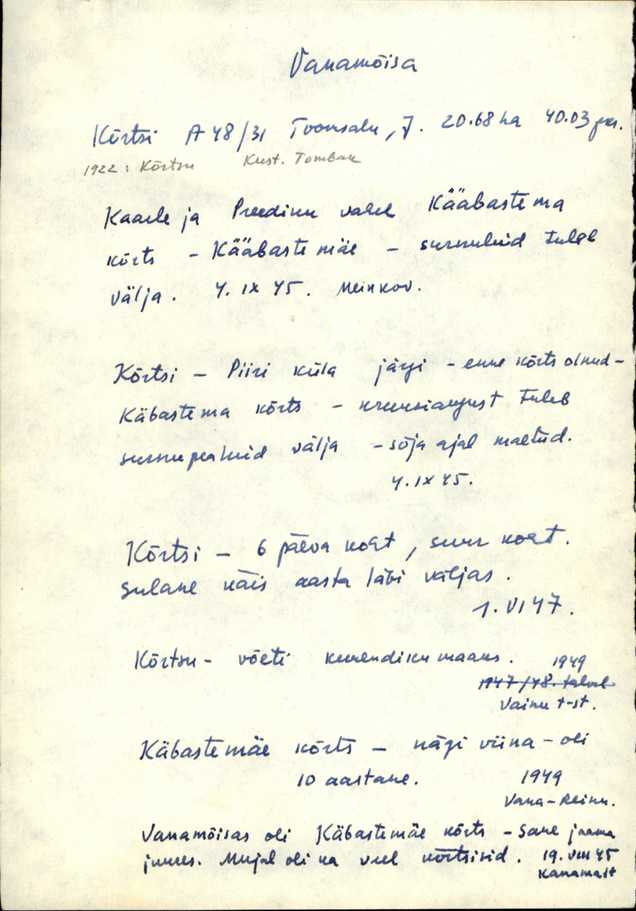 Vanamõisa
Kõrtsi A 48/31 Toomsalu, J. 20.68 ha 40.03
1922: Kõrtsu Kust. Tomban
Kaarle ja Preedinu vahel Kääbastema
kõrts - Kääbastemäe - surnuluid tuleb
välja. 4. IX 45. Meinkov.
Kõrtsi - Piiri küla järgi - enne kõrts olnud -
Käbastema kõrts - kruusiaugust tuleb
surnupealuid välja - sõja ajal maetud.
4. IX 45.
Kõrtsi - 6 päeva koht, suur koht.
Sulane käis aasta läbi väljas.
1. VI 47.
Kõrtsu - võeti kunendiku maaks. 1949
1947/48. talvel
Vainu t-st.
Käbastemäe kõrts - nägi viina - oli
10 aastane. 1949
Vana-Reinu.
Vanamõisas oli Käbastemäe kõrts - Sane jaama
juures. Mujal oli ka veel kõrtsisid. 19. VIII 45
Kanamast